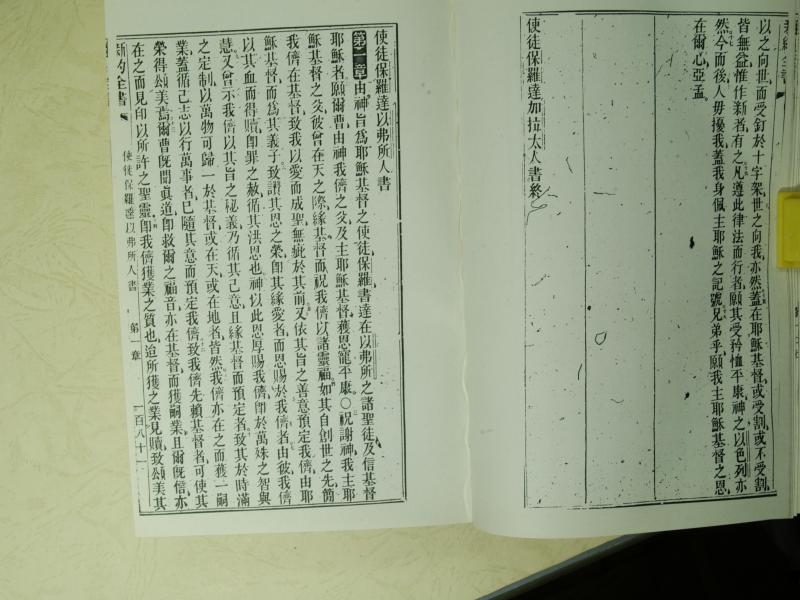 以之向世而受釘於十字架世之向我亦然蓋在耶穌基督或受割或不受割
皆無益惟作新者有之凡遵此律法而行者願其受矜恤平康神之以色列亦
然今而後人毋擾我蓋我身佩主耶穌之記號兄弟乎願我主耶穌基督之恩
在爾心亞孟
使徒保羅達加拉太人書終
使徒保羅達以弗所人書
第一章由神旨為耶穌基督之使徒保羅書達在以弗所之諸聖徒及信基督
耶穌者願爾曹由神我儕之父及主耶穌基督獲恩寵平康○祝謝神我主耶
穌基督之父彼曾在天之際緣基督而祝我儕以諸靈福如其自創世之先簡
我儕在基督致我以愛而成聖無疵於其前又依其旨之善意預定我儕由耶
穌基督而為其義子致讚其恩之榮即其緣愛者而恩賜於我儕者由彼我儕
以其血而得贖即罪之赦循其洪恩也神以此恩厚賜我儕即於萬殊之智與
慧又曾示我儕以其旨之秘義乃循其己意且緣基督而預定者致其於時滿
之定制以萬物可歸一於基督或在天或在地者皆然我儕亦在之而獲一嗣
業蓋循己志以行萬事者已隨其意而預定我儕致我儕先賴基督者可使其
榮得頌美焉爾曹既聞真道即救爾之福音亦在基督而獲嗣業且爾既信亦
在之而見印以所許之聖靈即我儕獲業之質也迨所獲之業見贖致頌美其
新約全書
使徒保羅達以弗所人書
第一章
百八十一